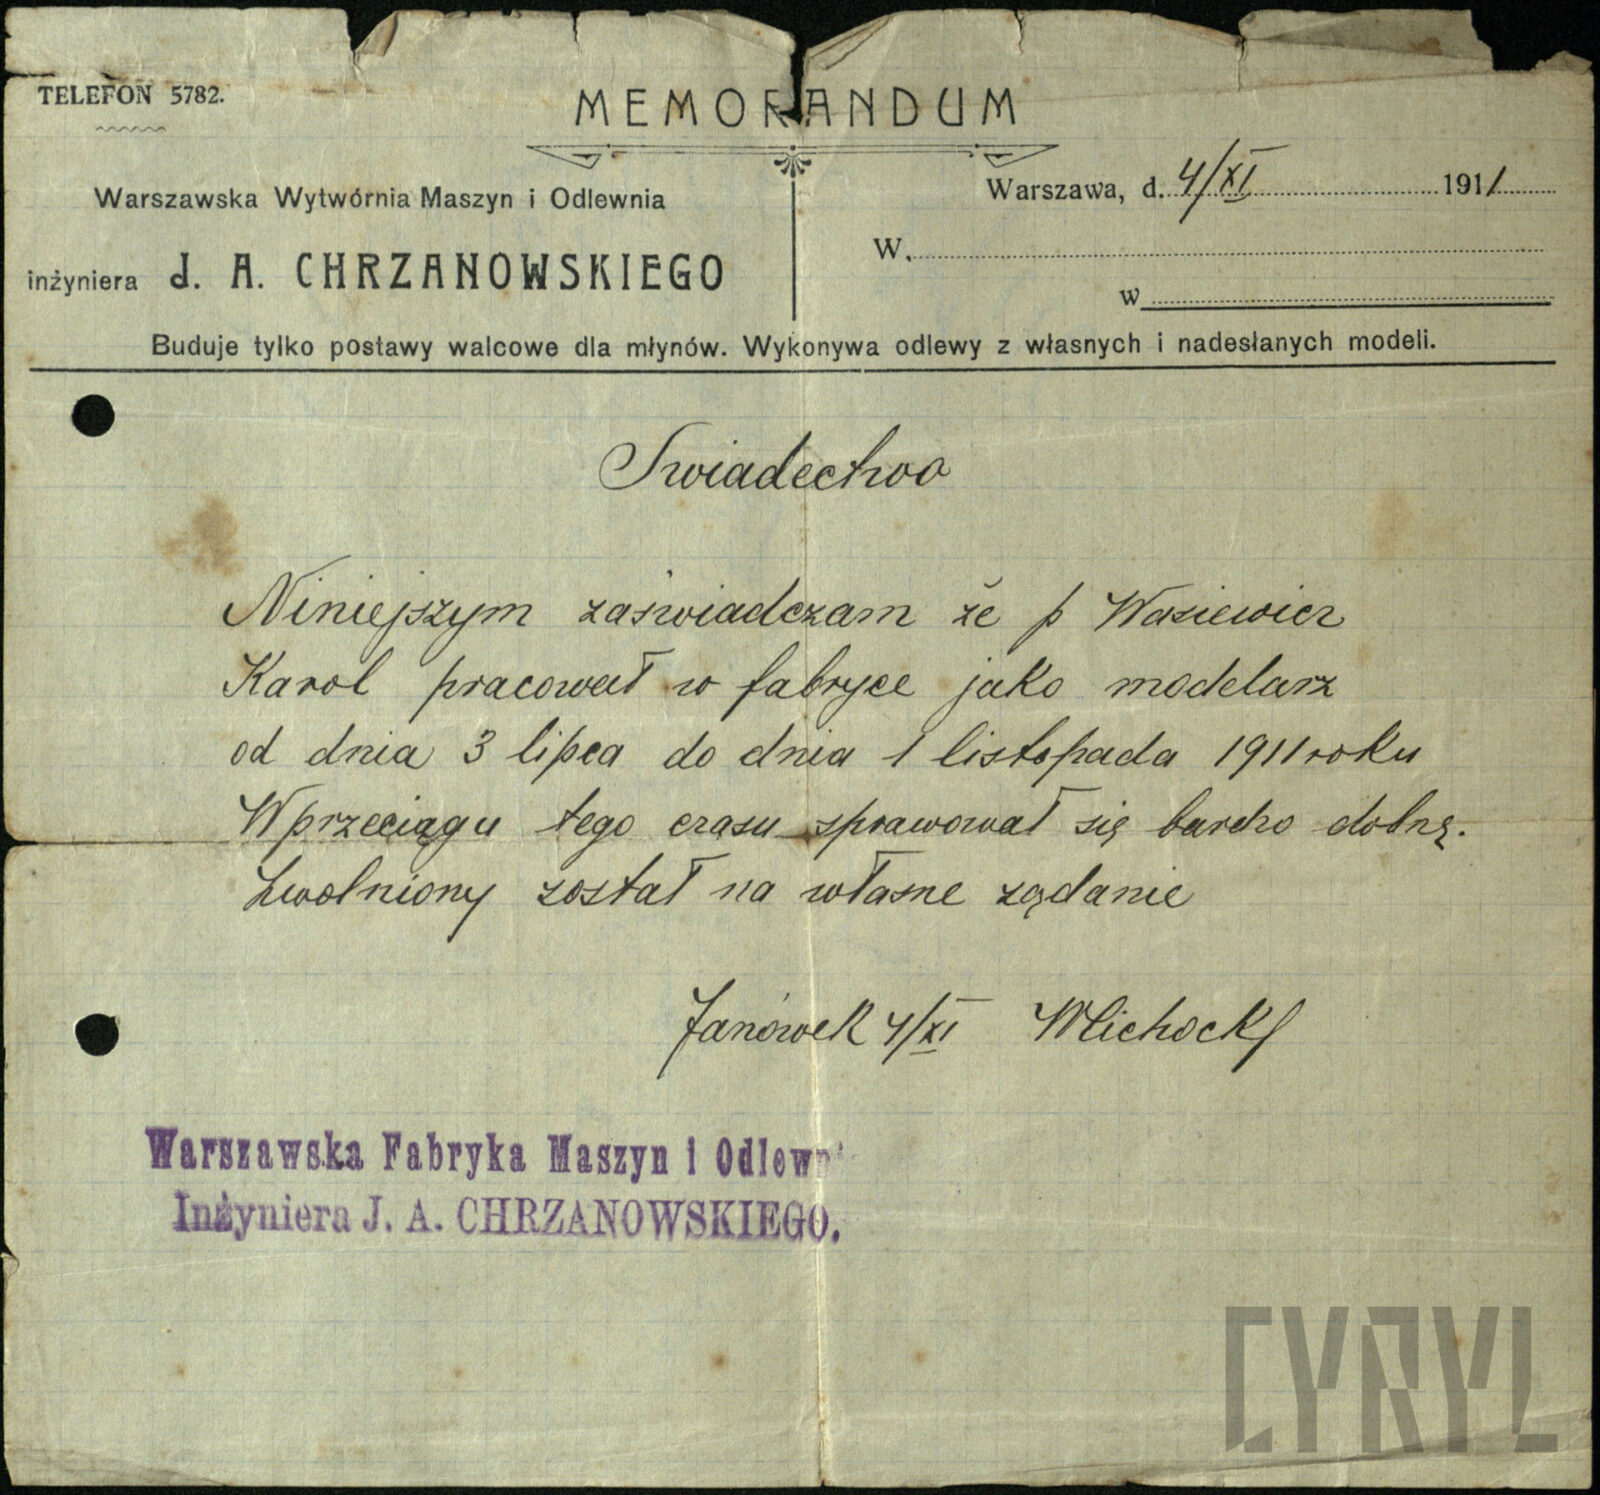 TELEFON 5782.
MEMORANDUM
Warszawska Wytwórnia Maszyn i Odlewnia
inżyniera J. A. CHRZANOWSKIEGO
Warszawa, d. 4/XI 1911
W.
w
Buduje tylko postawy walcowe dla młynów. Wykonywa odlewy z własnych i nadesłanych modeli.
Swiadectwo
Niniejszym zaświadczam że p Wasiewicz
Karol pracował w fabryce jako modelarz
od dnia 3 lipca do dnia 1 listopada 1911 roku
W przeciągu tego czasu sprawował się bardzo
Zwolniony został na własne ządanie
Janówek 4/XI
Warszawska Fabryka Maszyn i Odlewni
Inżyniera J. A. CHRZANOWSKIEGO.
CYRYL